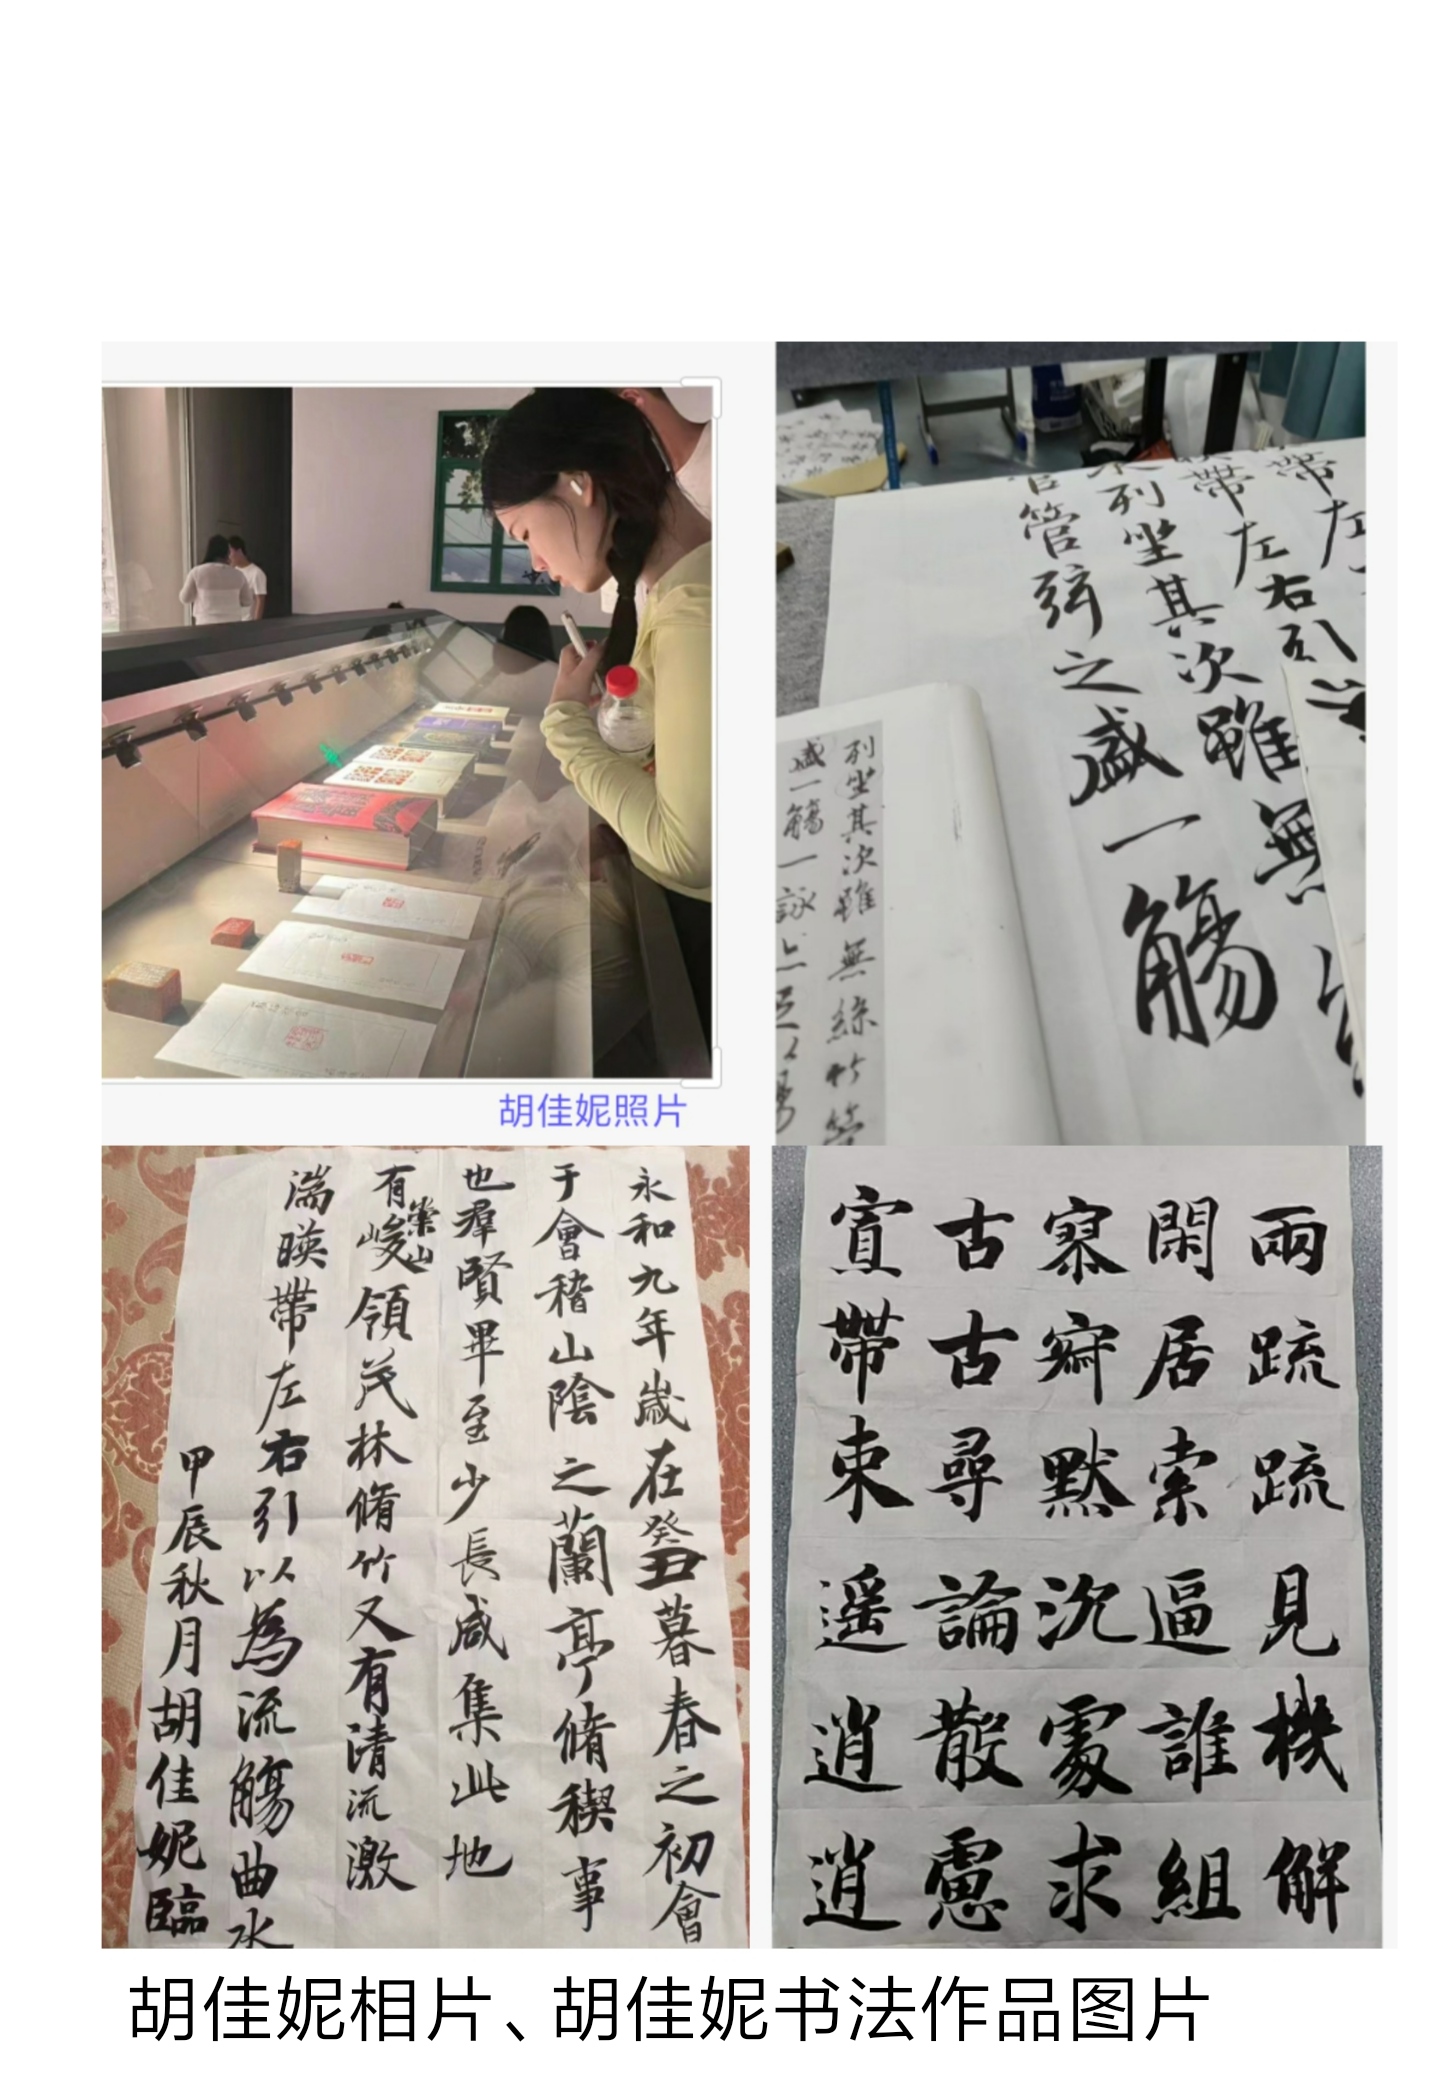 管弦之盛一觴
列坐其次雖無
帶左右引
帶左
列坐其次雖無絲竹管
盛一觴一詠
胡佳妮照片
永和九年歲在癸丑暮春之初會
于會稽山陰之蘭亭脩稧事
也羣賢畢至少長咸集此地
有崇山峻領茂林脩竹又有清流激
湍暎帶左右引以為流觴曲水
甲辰秋月胡佳妮臨
兩疏見機解
組誰逼索居閑
處沉默寂寥
求古尋論
散慮逍遙
胡佳妮相片、胡佳妮书法作品图片